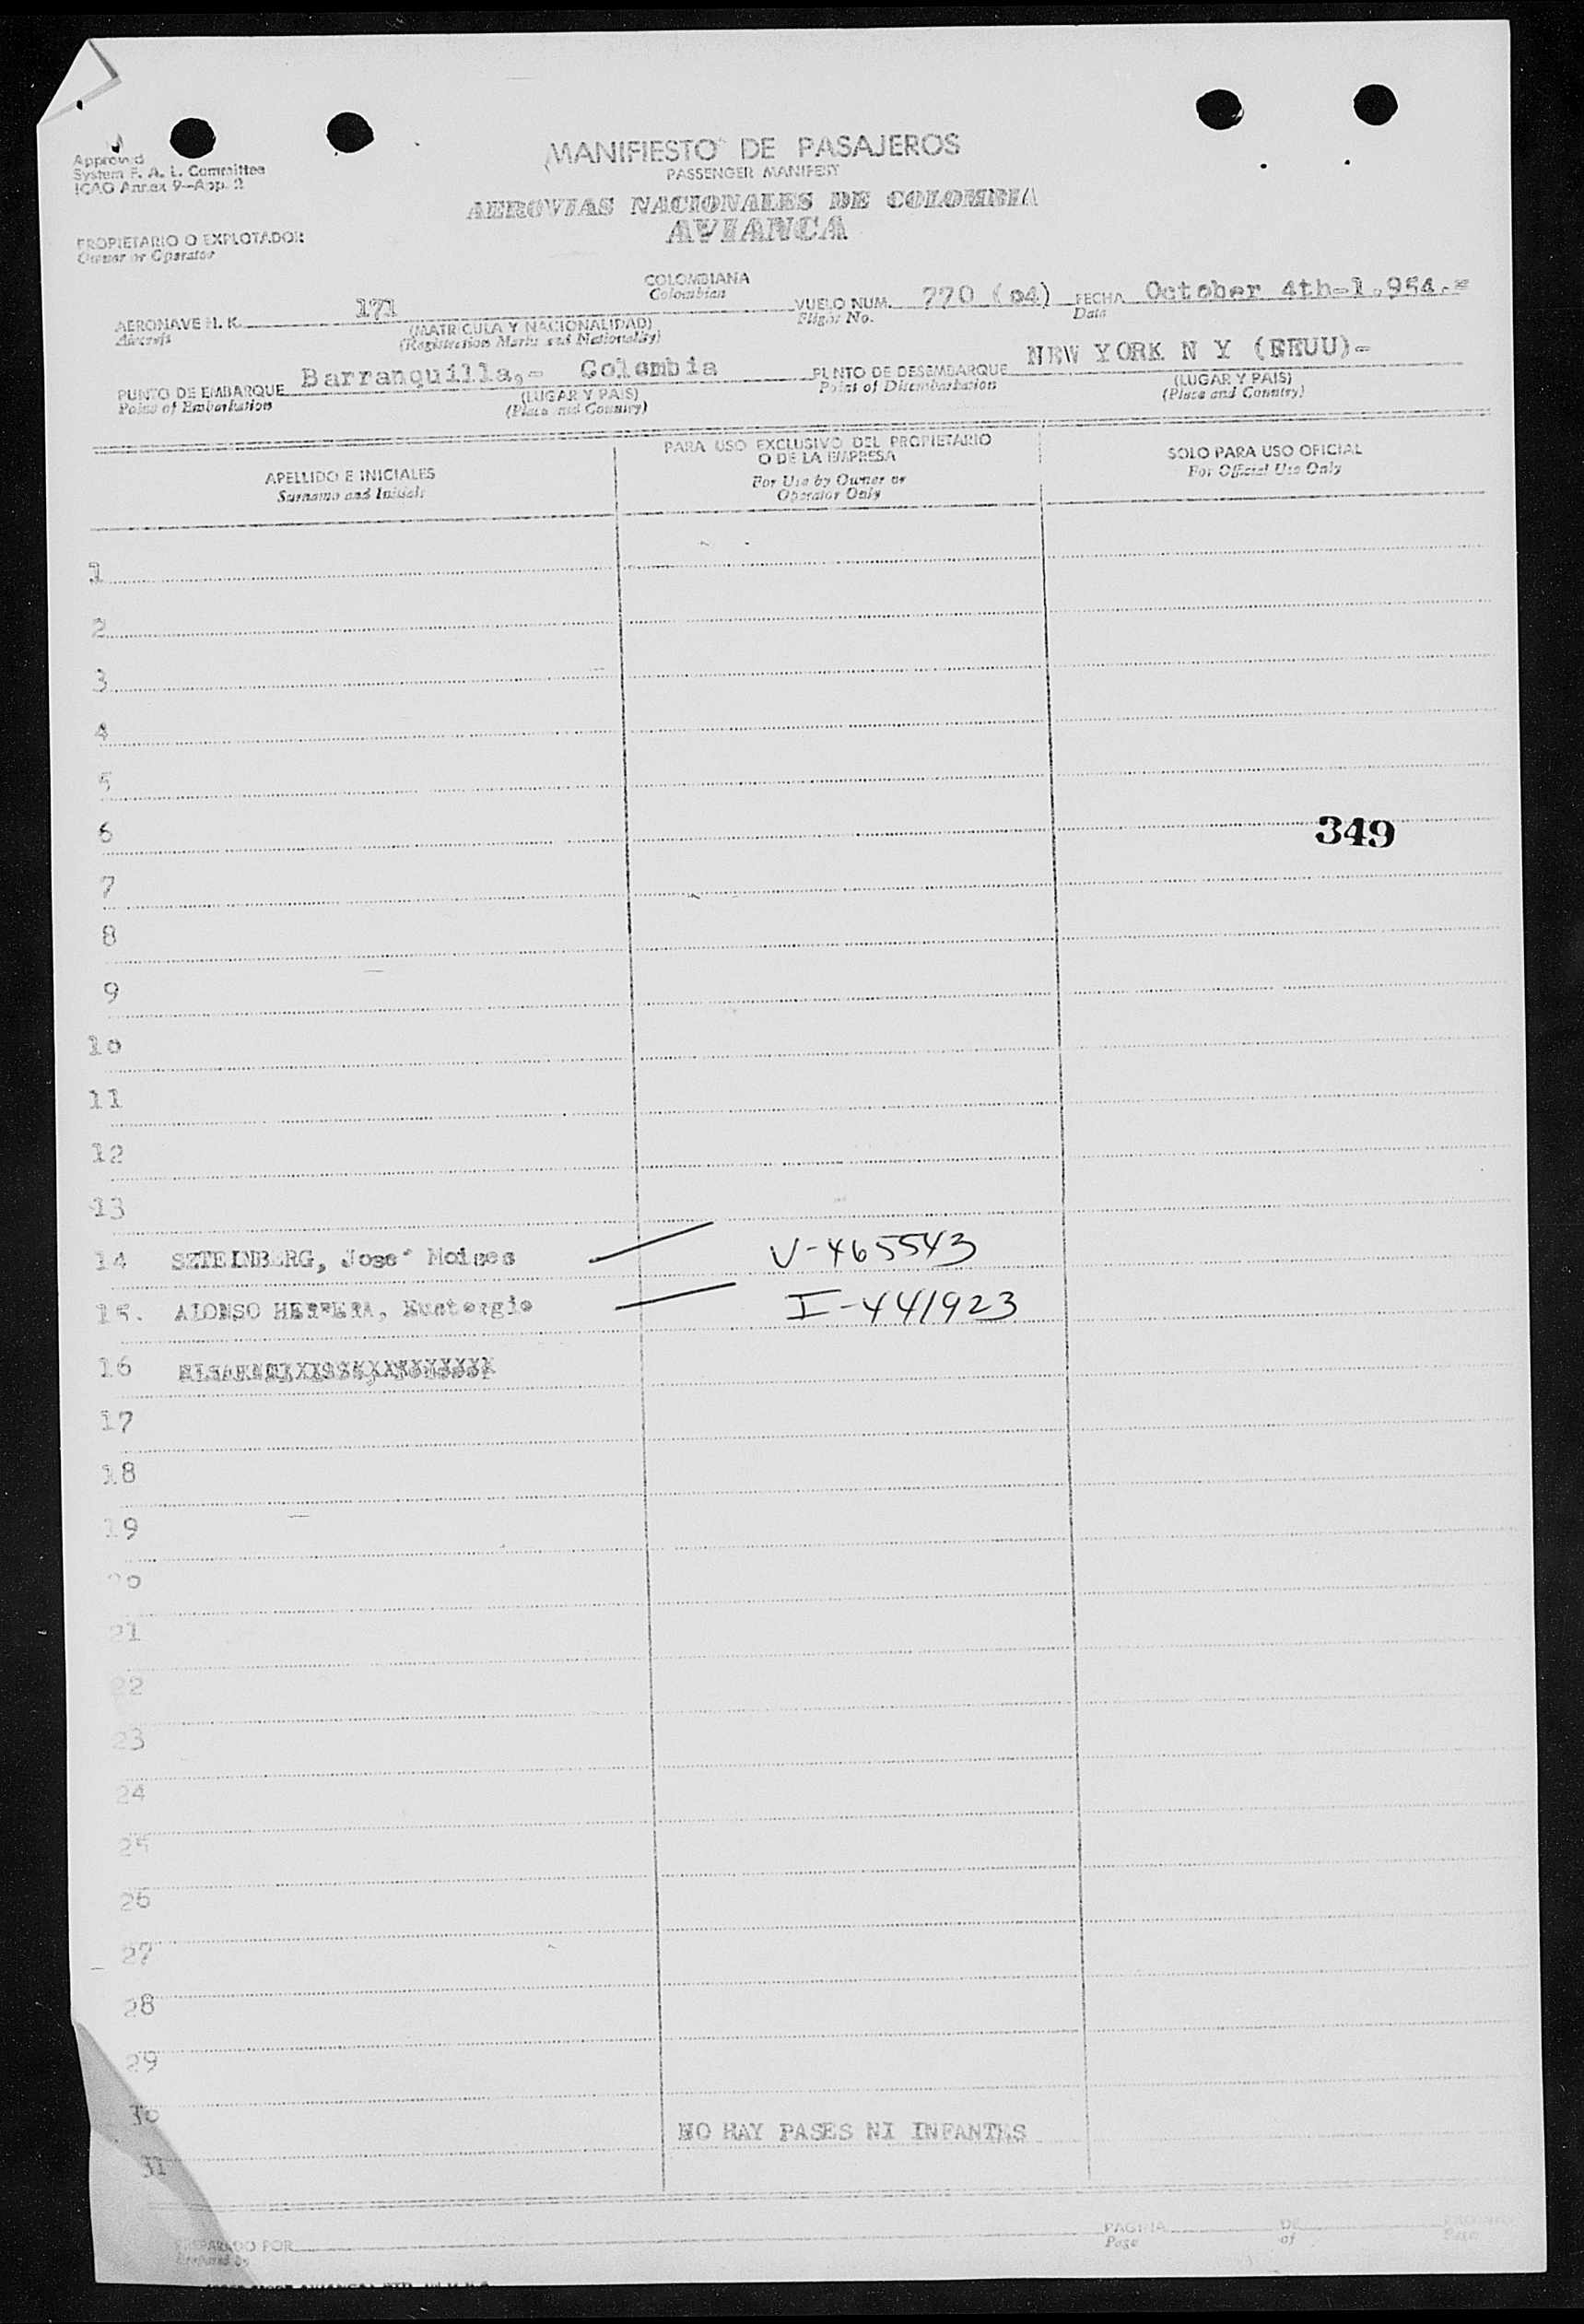 Approved
System F. A. L. Committee
ICAO Annex 9—App. 2
MANIFIESTO DE PASAJEROS
PASSENGER MANIFEST
AEROVIAS NACIONALES DE COLOMBIA
AVIANCA
PROPIETARIO O EXPLOTADOR
Owner or Operator
COLOMBIANA
Colombian
AERONAVE H. K. 171
Aircraft
(MATRICULA Y NACIONALIDAD)
(Registration Marks and Nationality)
VUELO NUM. 770 (04) FECHA October 4th-1.954.=
Flight No. Data
PUNTO DE EMBARQUE Barranquilla,- Colombia
Point of Embarkation
(LUGAR Y PAIS)
(Place and Country)
PUNTO DE DESEMBARQUE NEW YORK N Y (EEUU)-
Point of Disembarkation
(LUGAR Y PAIS)
(Place and Country)
APELLIDO E INICIALES
Surname and Initials
PARA USO EXCLUSIVO DEL PROPIETARIO
O DE LA EMPRESA
For Use by Owner or
Operator Only
SOLO PARA USO OFICIAL
For Official Use Only
1
2
3
4
5
6 349
7
8
9
10
11
12
13
14 SZTEINBERG, Jose' Moises V-465543
15. ALONSO HERRERA, Eustorgio I-441923
16
17
18
19
20
21
22
23
24
25
26
27
28
29
30
NO HAY PASES NI INFANTES
31
PREPARADO POR
Prepared by
PAGINA DE
Page of